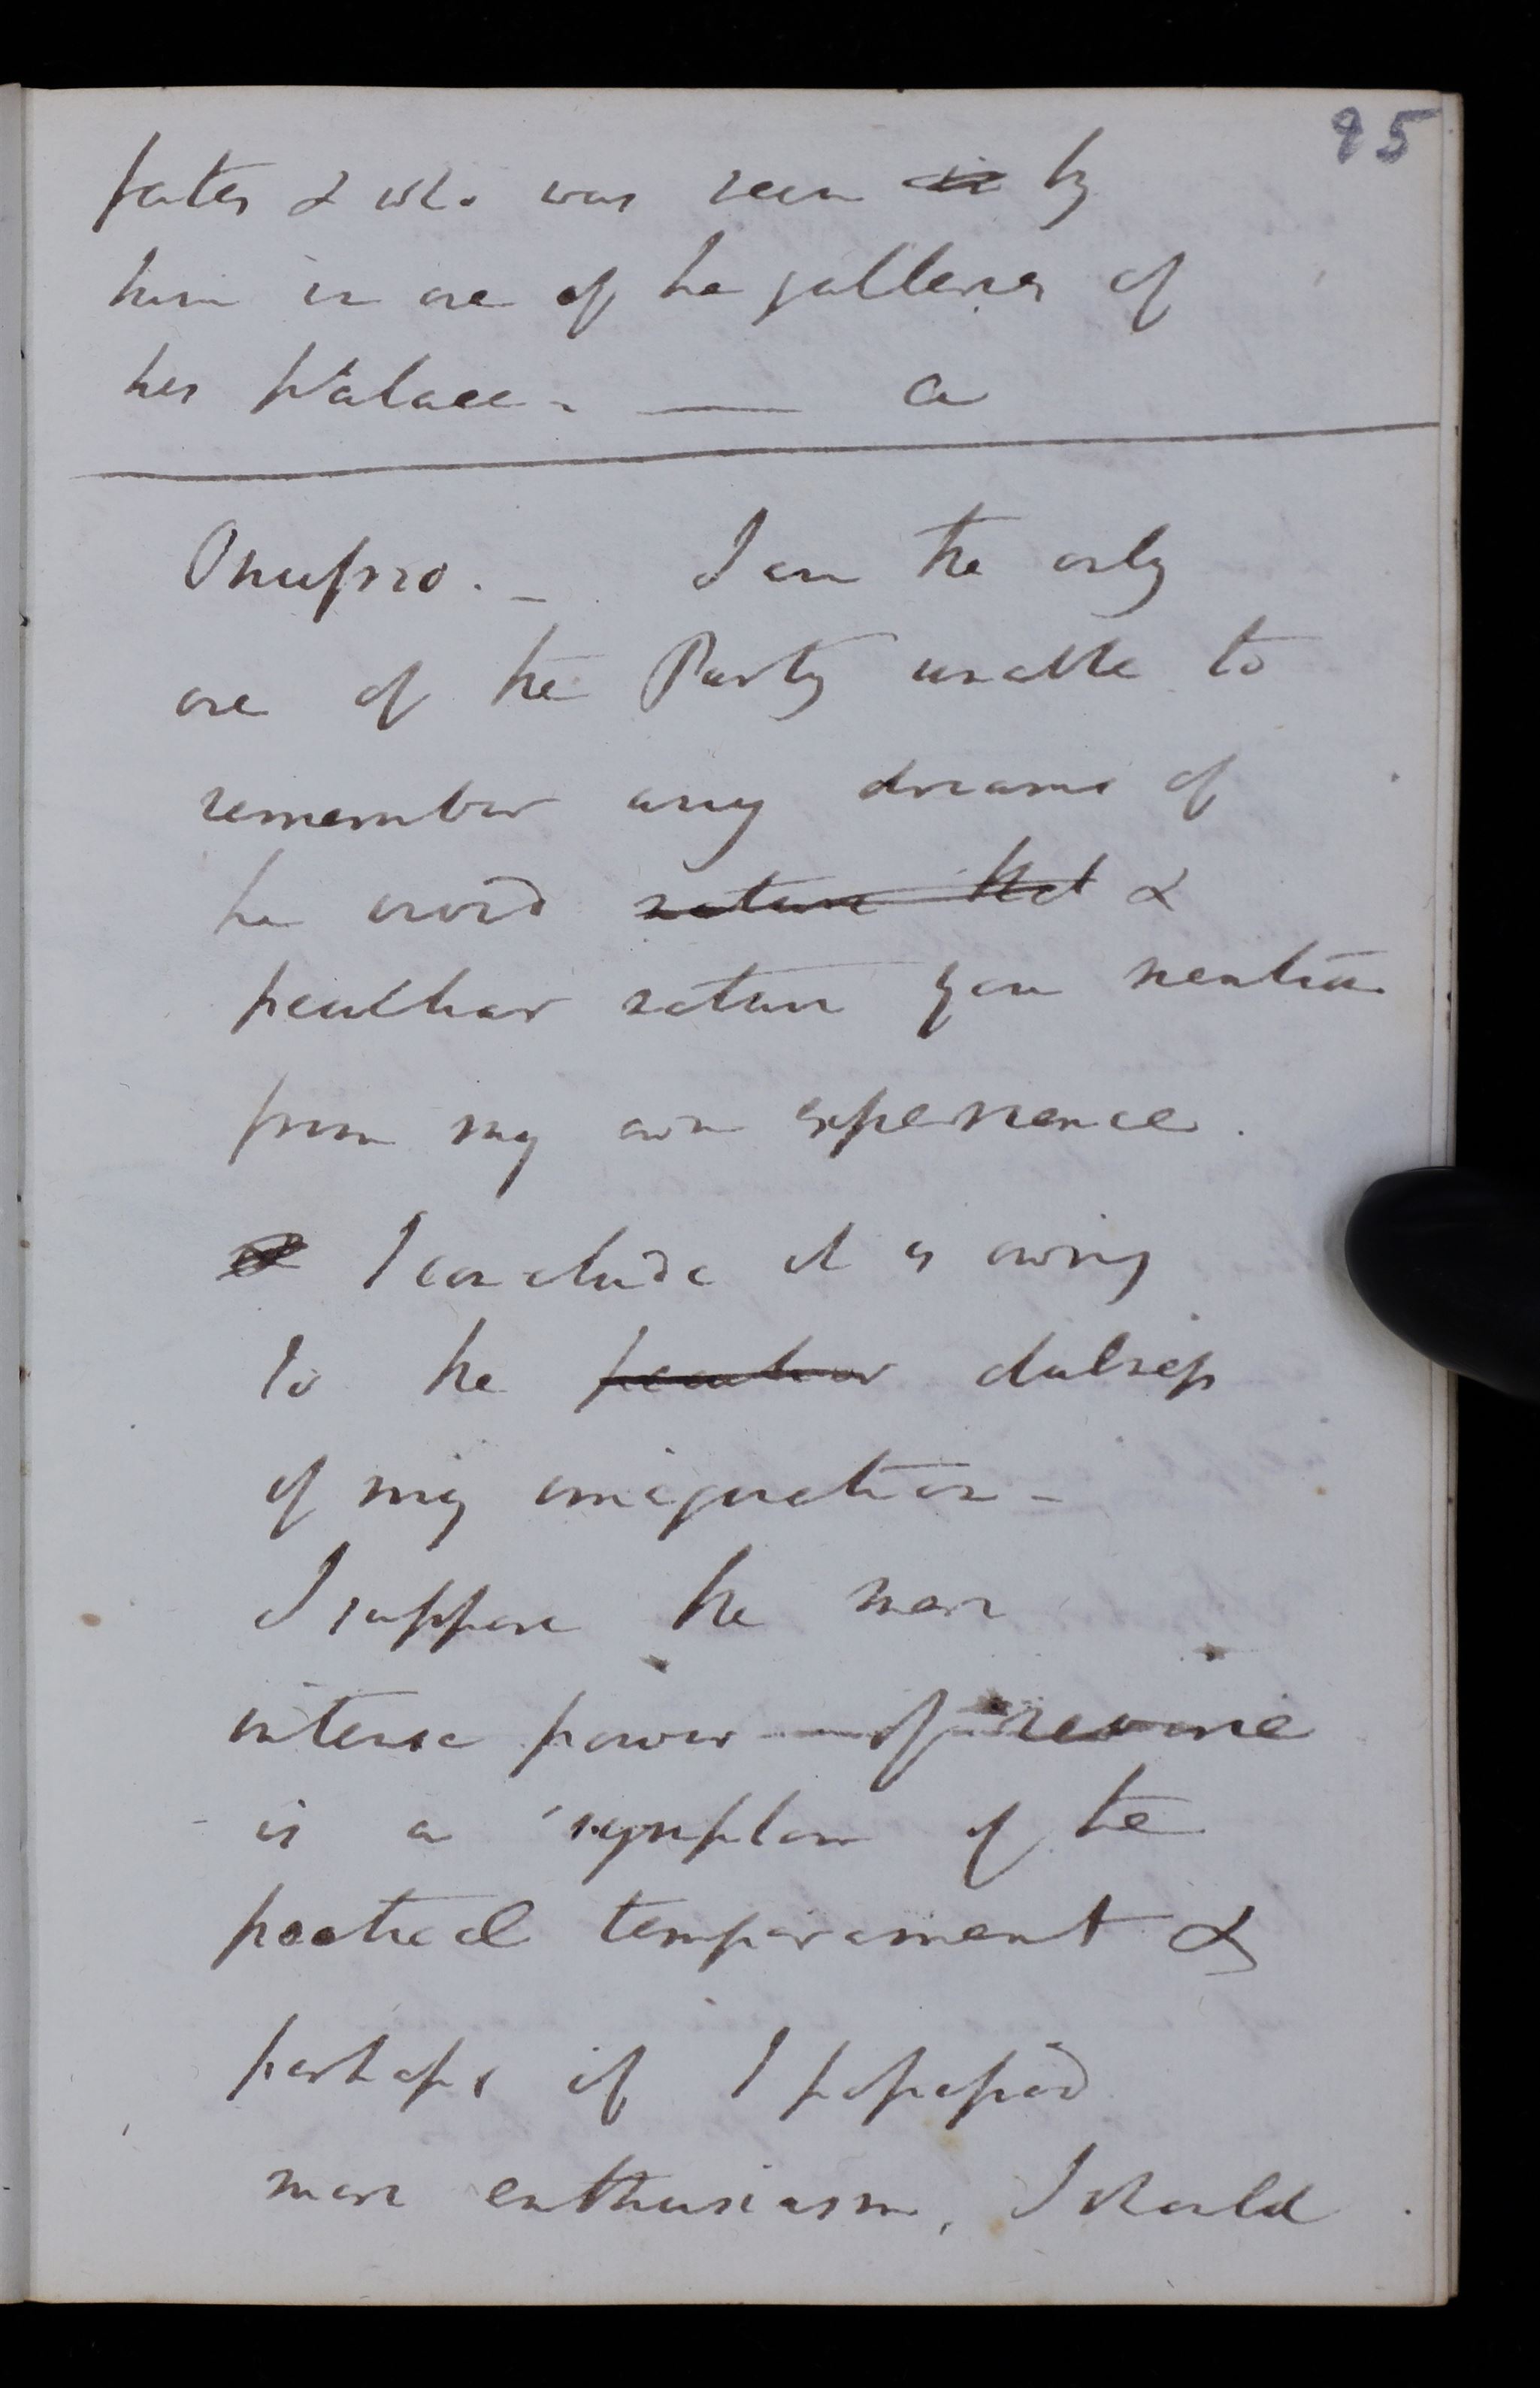 95
fates & who was seen ~~in~~ by
him in one of the galleries of
her Palace. — a
Onufrio. _ I am the only
one of the Party unable to
remember any dreams of
the vivid ~~nature that~~ &
peculiar nature you mention
from my own experience.
~~&~~ I conclude it is owing
to the ~~peculiar~~ dulness
of my imagination -
I suppose the more
intense power of reverie
is a symptom of the
poetical temperament &
perhaps if I possessed
more enthusiasm, I should